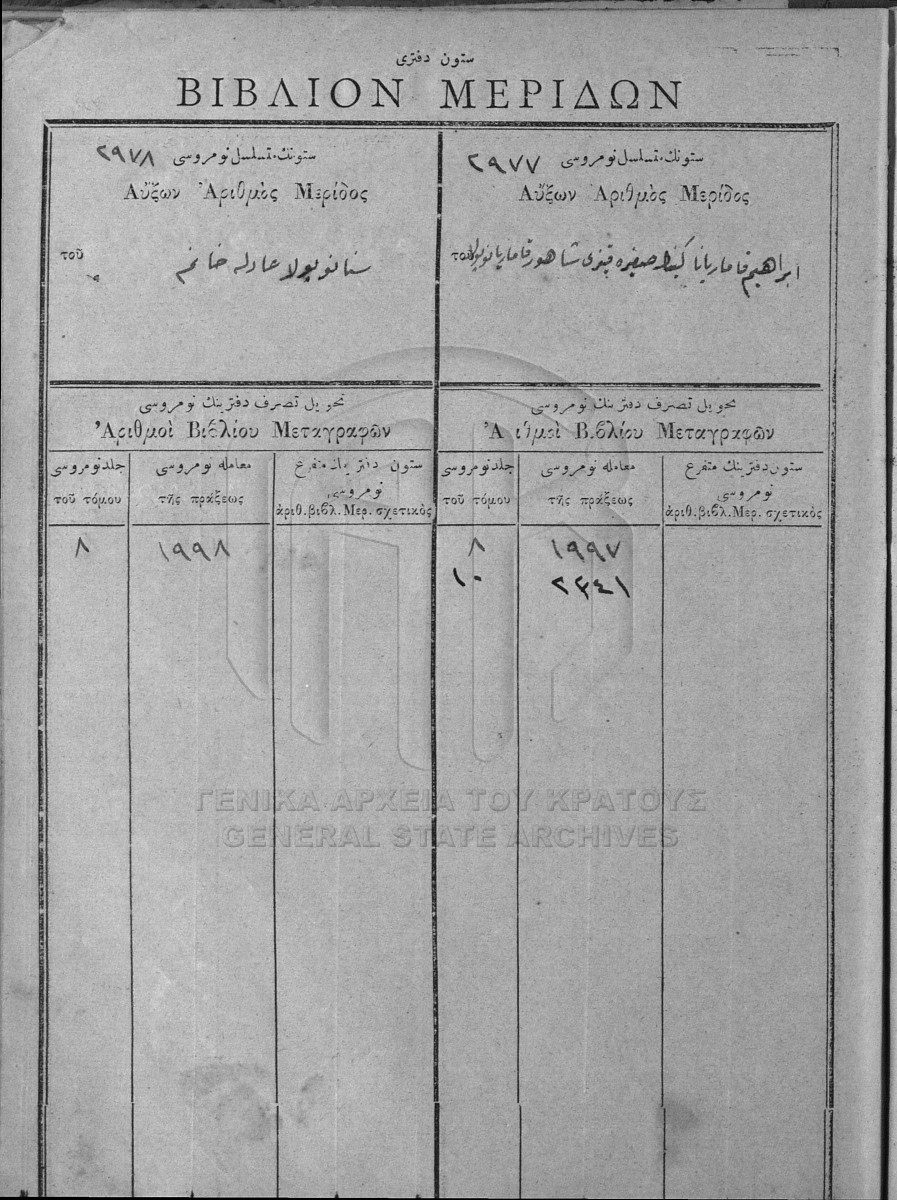 ستون دفتری
ΒΙΒΛΙΟΝ ΜΕΡΙΔΩΝ
ستونك تسلسل نومروسی ٢٩٧٨
Αὔξων Ἀριθμὸς Μερίδος
τοῦ
عادله خانم
ستونك تسلسل نومروسی ٢٩٧٧
Αὔξων Ἀριθμὸς Μερίδος
τοῦ
ابراهيم
تحویل تصرف دفترینك نومروسی
Ἀριθμοὶ Βιβλίου Μεταγραφῶν
جلد نومروسی
τοῦ τόμου
معامله نومروسی
τῆς πράξεως
ستون دفترینك متفرع
نومروسی
ἀριθ. βιβλ. Μερ. σχετικὸς
٨ ١٩٩٨
تحویل تصرف دفترینك نومروسی
Ἀ ιθμοὶ Βιβλίου Μεταγραφῶν
جلد نومروسی
τοῦ τόμου
معامله نومروسی
τῆς πράξεως
ستون دفترینك متفرع
نومروسی
ἀριθ. βιβλ. Μερ. σχετικὸς
٨ ١٩٩٧
١٠ ٢٣٤١
ΓΕΝΙΚΑ ΑΡΧΕΙΑ ΤΟΥ ΚΡΑΤΟΥΣ
GENERAL STATE ARCHIVES